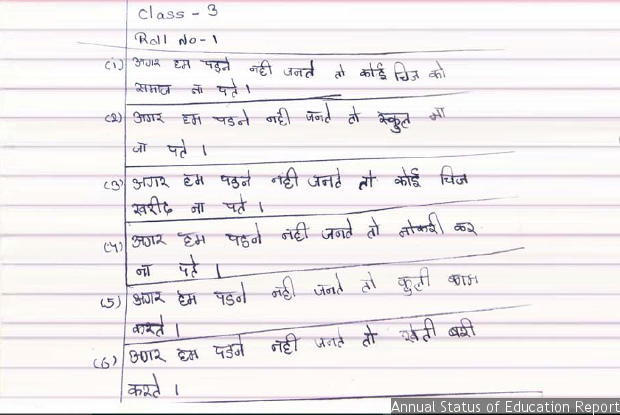 Class - 3
Roll No - 1
(1) अगर हम पड़ने नही जनते तो कोई चिज को
समाज ना पते ।
(2) अगर हम पडने नही जनते तो स्कुल ना
जा पते ।
(3) अगर हम पडने नही जनते तो कोई चिज
खरीद ना पते ।
(4) अगर हम पडने नही जनते तो नोकरी कर
ना पते ।
(5) अगर हम पडने नही जनते तो कुली काम
करते ।
(6) अगर हम पडने नही जनते तो खेती बरी
करते ।
Annual Status of Education Report